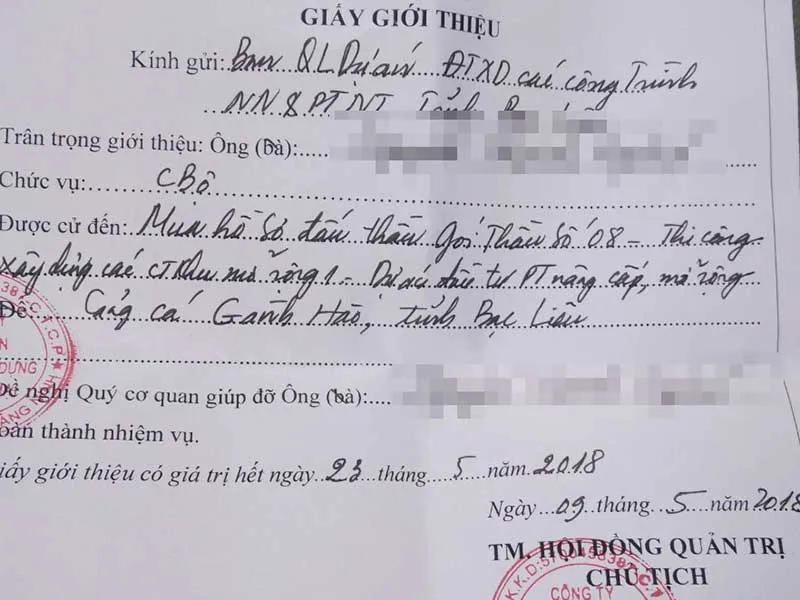 GIẤY GIỚI THIỆU
Kính gửi: Ban QL Dự án ĐTXD các công Trình
NN & PTNT Tỉnh
Trân trọng giới thiệu: Ông (bà):
Chức vụ: CBộ
Được cử đến: Mua hồ sơ đấu thầu Gói Thầu Số 08 - Thi công
xây dựng các CT Khu mở rộng 1 - Dự án đầu tư PT nâng cấp, mở rộng
Để: Cảng cá Gành Hào, tỉnh Bạc Liêu
nghị Quý cơ quan giúp đỡ Ông (bà):
thành nhiệm vụ.
iấy giới thiệu có giá trị hết ngày 23 tháng 5 năm 2018
Ngày 09 tháng 5 năm 2018
TM. HỘI ĐỒNG QUẢN TRỊ
CHỦ TỊCH
CÔNG TY